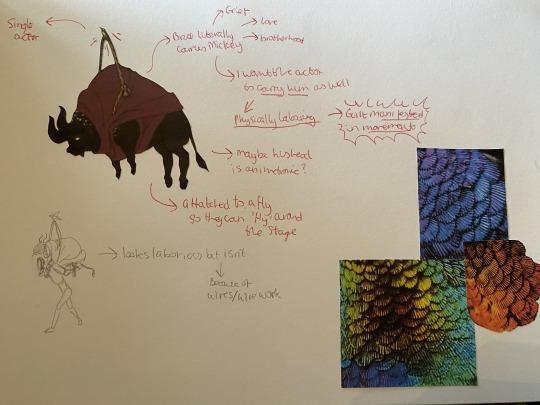 Single
actor
Brae literally
carries Mickey
Grief
Love
brotherhood
I want the actor
to carry him as well
Physically labouring
Guilt manifested
in movement
maybe his head
is animatronic?
attatched to a fly
so they can 'fly' around
the stage
looks laborious but isn't
Because of
wires/wire work